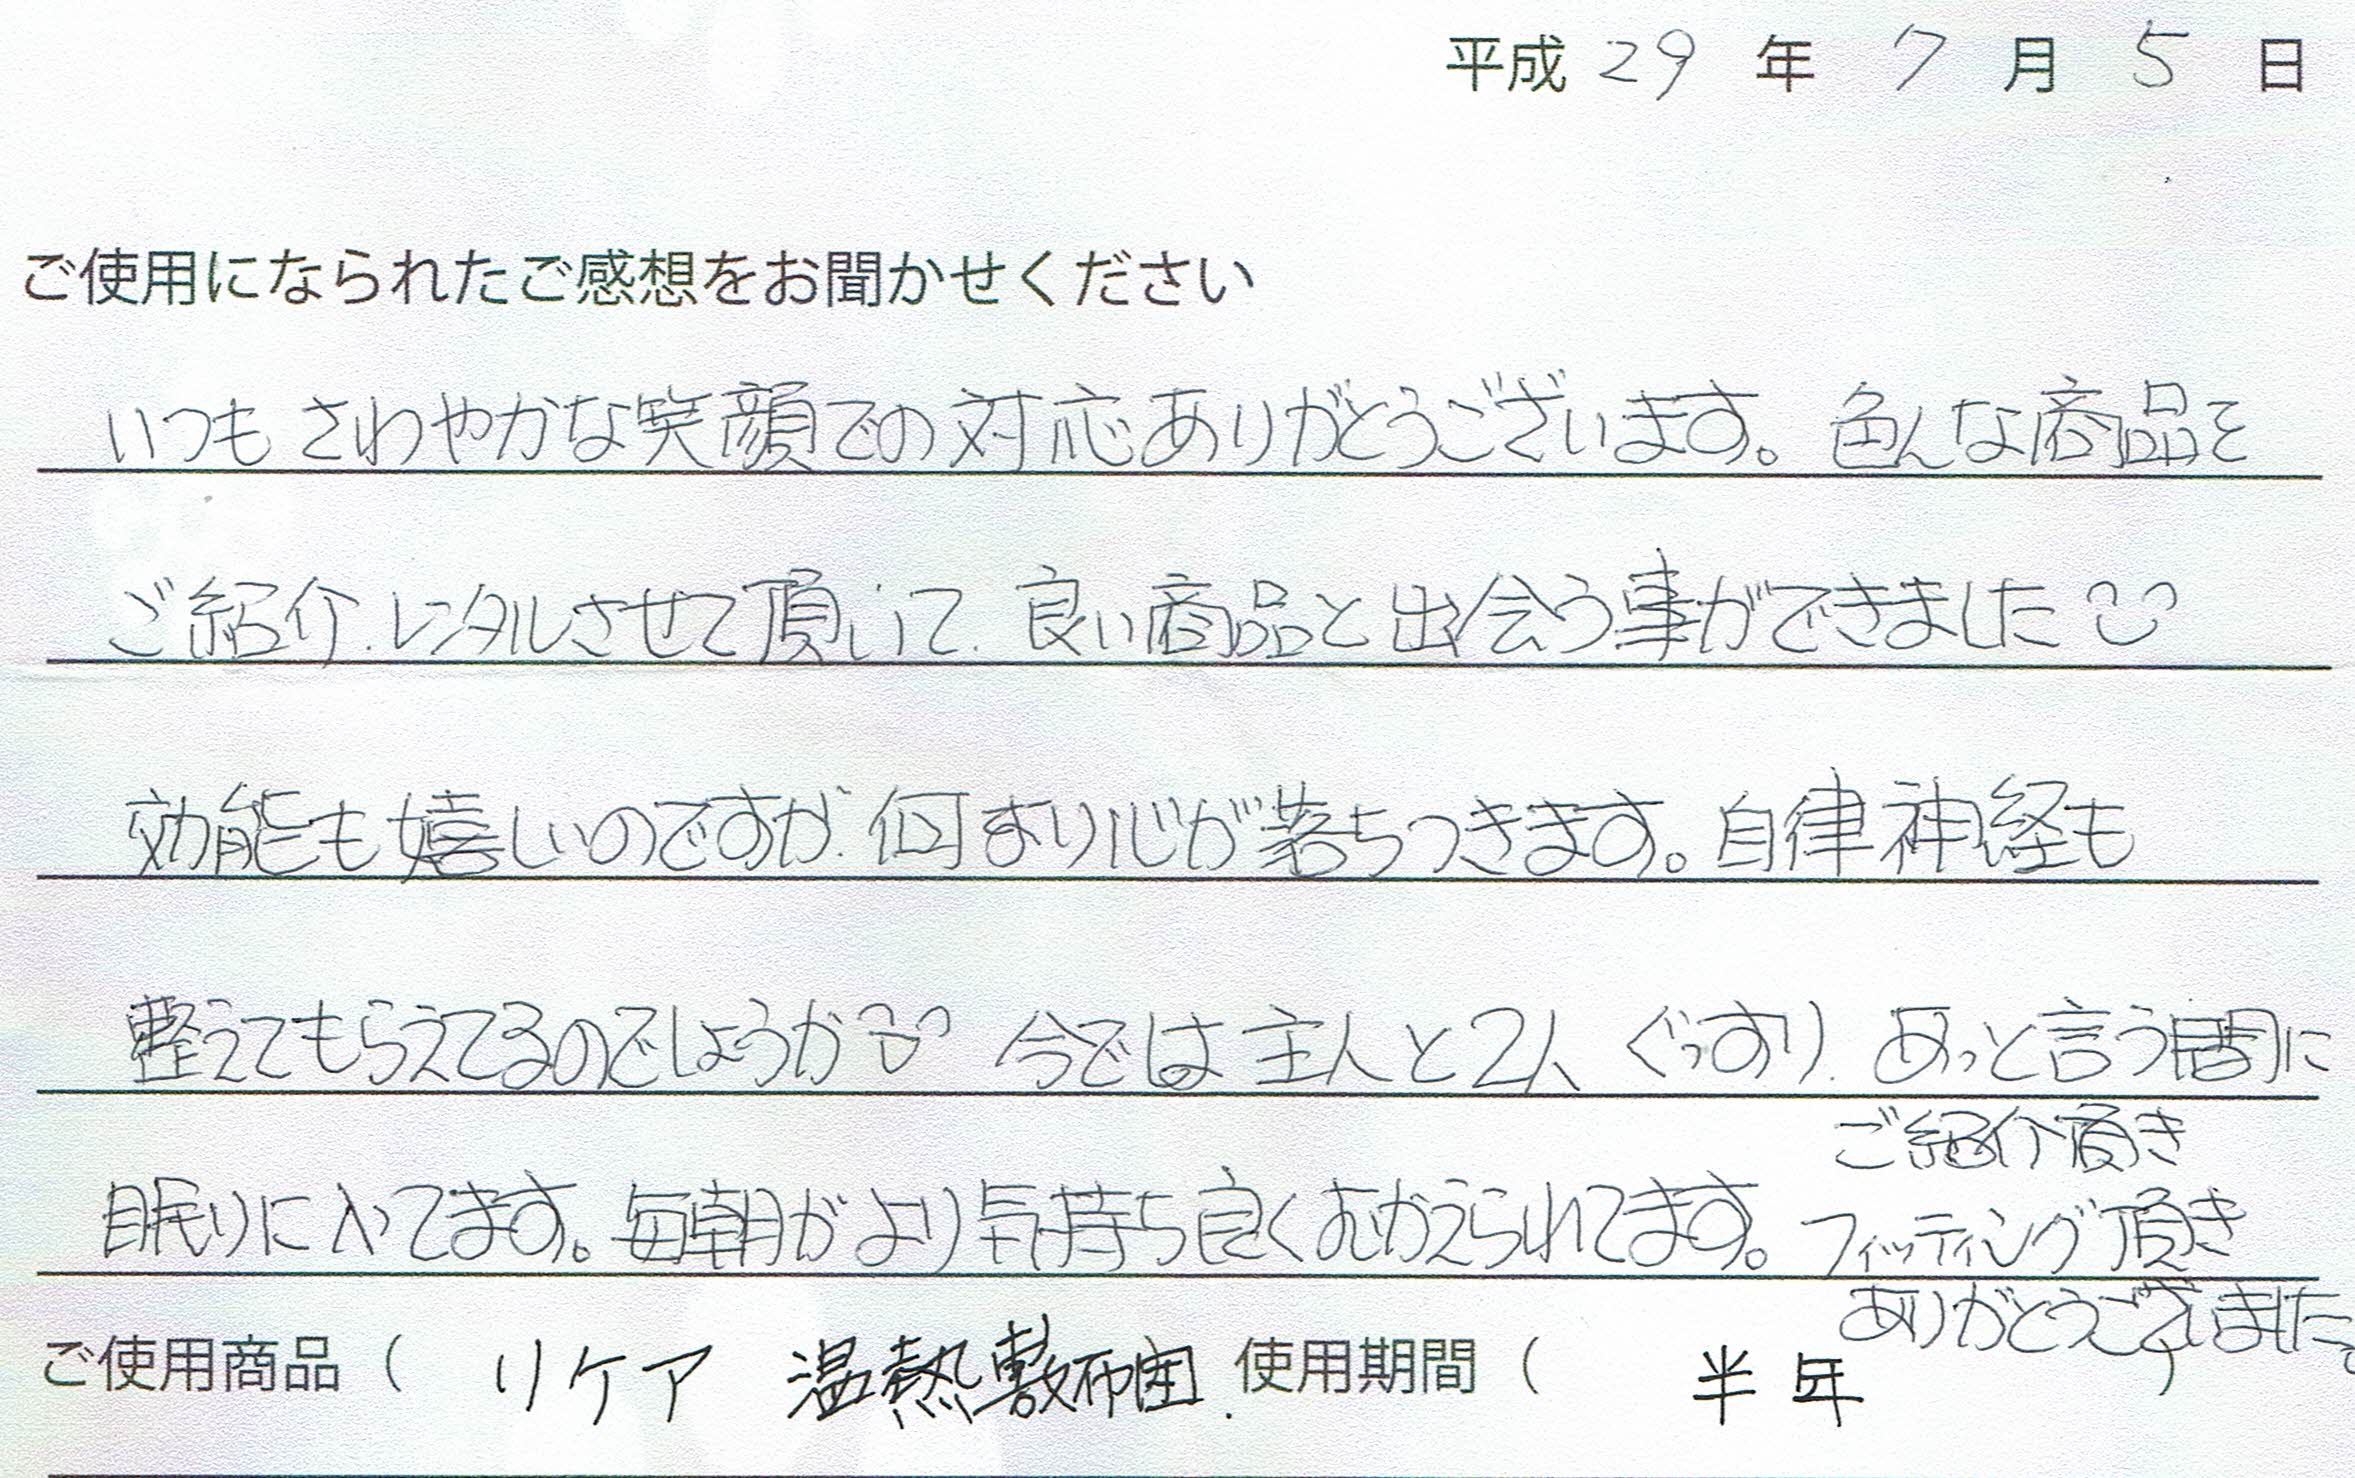 平成 29 年 7 月 5 日
ご使用になられたご感想をお聞かせください
いつもさわやかな笑顔での対応ありがとうございます。色んな商品を
ご紹介、レンタルさせて頂いて、良い商品と出会う事ができました
効能も嬉しいのですが、何より心が落ちつきます。自律神経も
整えてもらえてるのでしょうか 今では主人と2人ぐっすり、あっと言う間に
眠りに入いてます。毎朝がより気持ち良くむかえられてます。
ご紹介頂き
フィッティング頂き
ありがとうございました。
ご使用商品( リケア 温熱敷布団. 使用期間( 半年 )